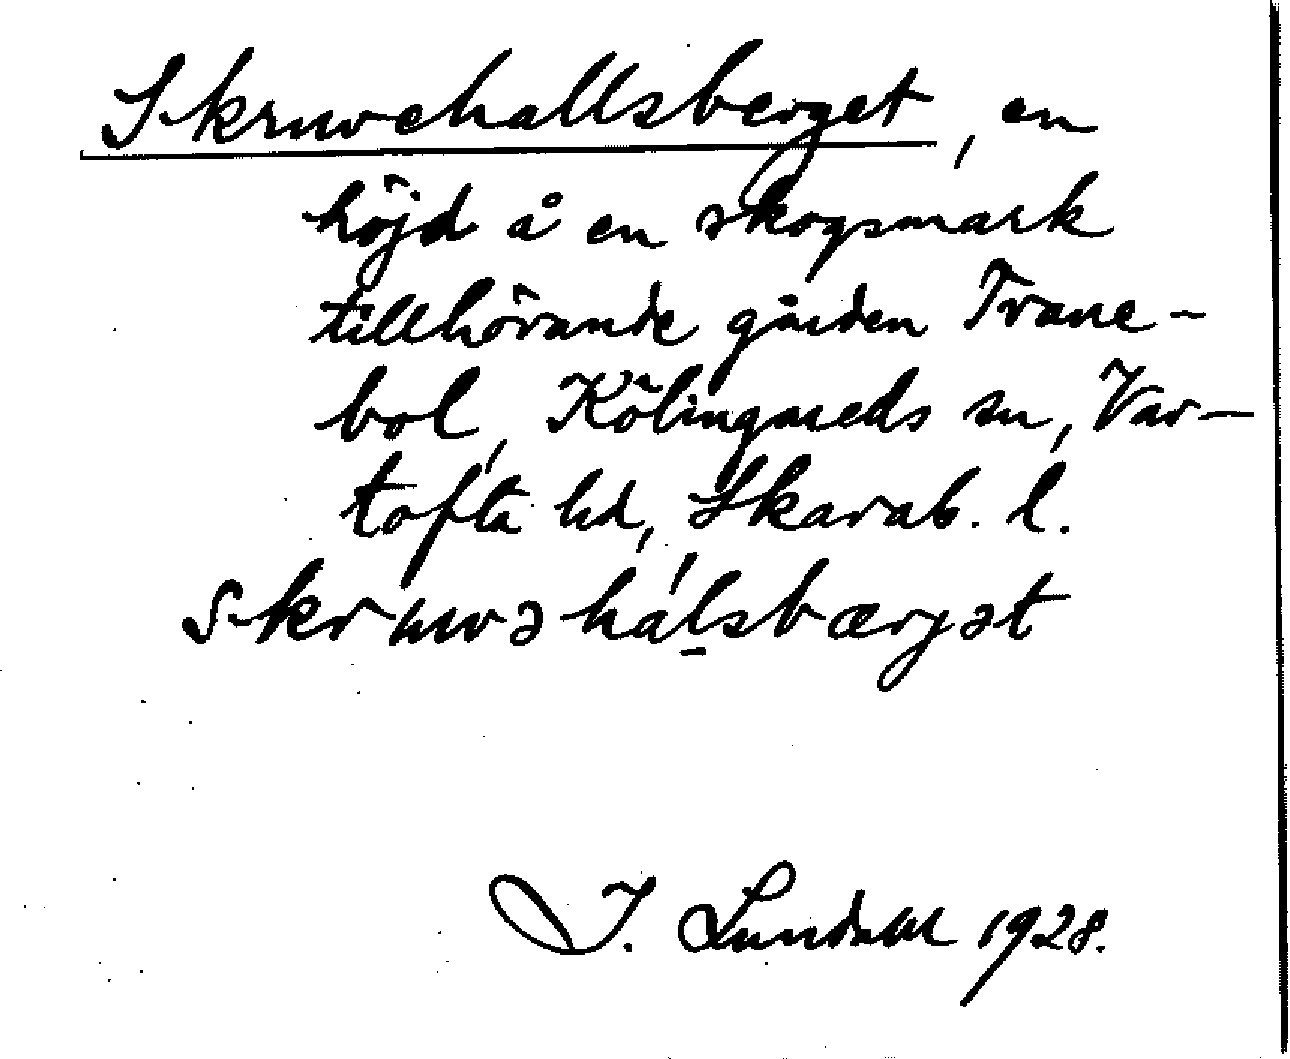 Skruvehallsberget, en
höjd å en skogsmark
tillhörande gården Trane-
bol, Kölingareds sn, Var-
tofta hd, Skarab. l.
skruvəhalsbærjət
I. Lundahl 1928.